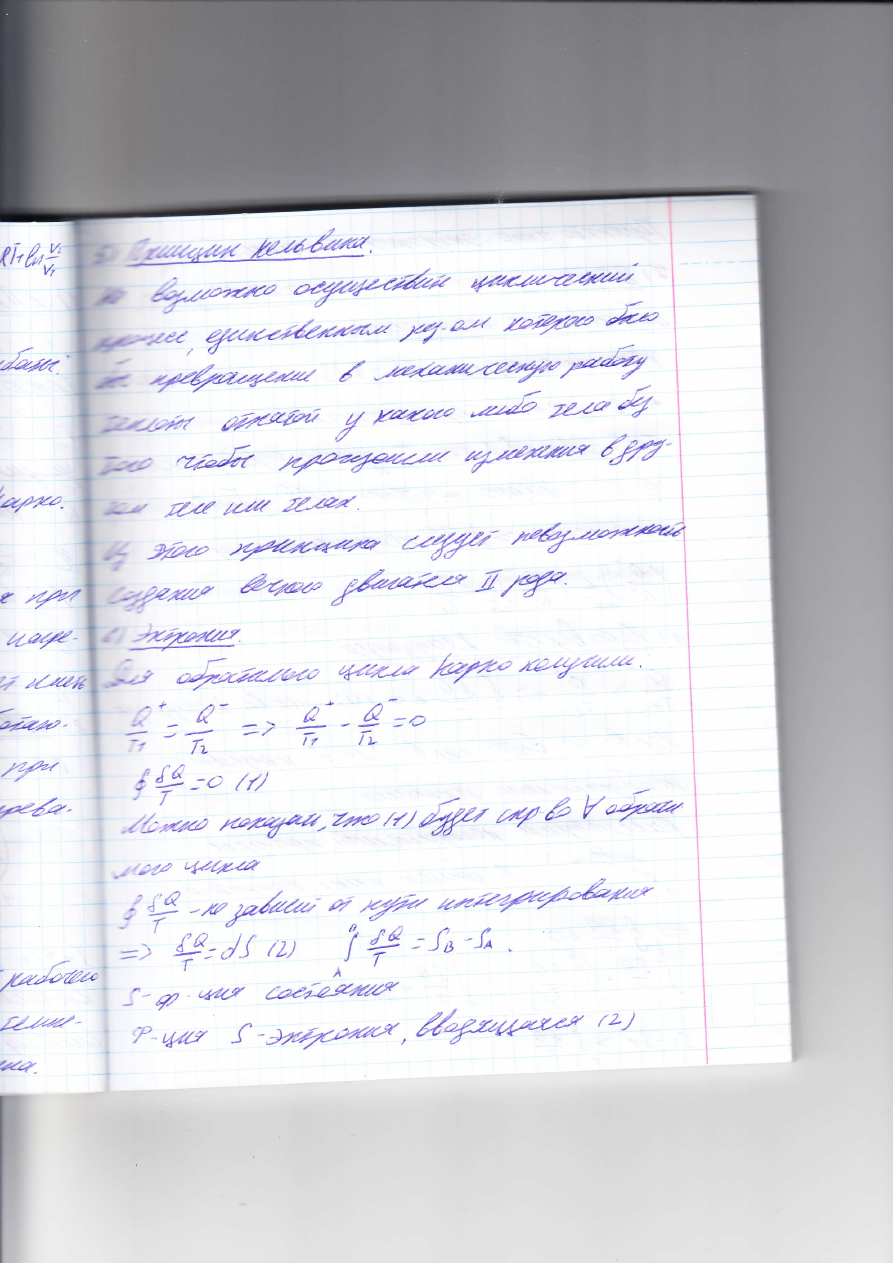 RT₁ ln V₂/V₁
5) Принцип Кельвина.
Не возможно осуществить циклический
процесс, единственным рез-ом которого было
бы превращение в механическую работу
теплоты отнятой у какого либо тела без
того чтобы произошли изменения в дру-
гом теле или телах.
Из этого принципа следует невозможность
создания вечного двигателя II рода.
6) Энтропия.
Для обратимого цикла Карно получили:
Q⁺/T₁ = Q⁻/T₂ => Q⁺/T₁ - Q⁻/T₂ = 0
∮ δQ/T = 0 (1)
Можно показать, что (1) будет спр во ∀ обрати
мого цикла
∮ δQ/T - не зависит от пути интегрирования
=> δQ/T = dS (2) ∫ₐᴮ δQ/T = S_B - S_A .
S - ф-ция состояния
Ф-ция S - энтропия, вводящаяся (2)
Карно.
при
нагре-
ет иметь
при
рабочего
темпе-